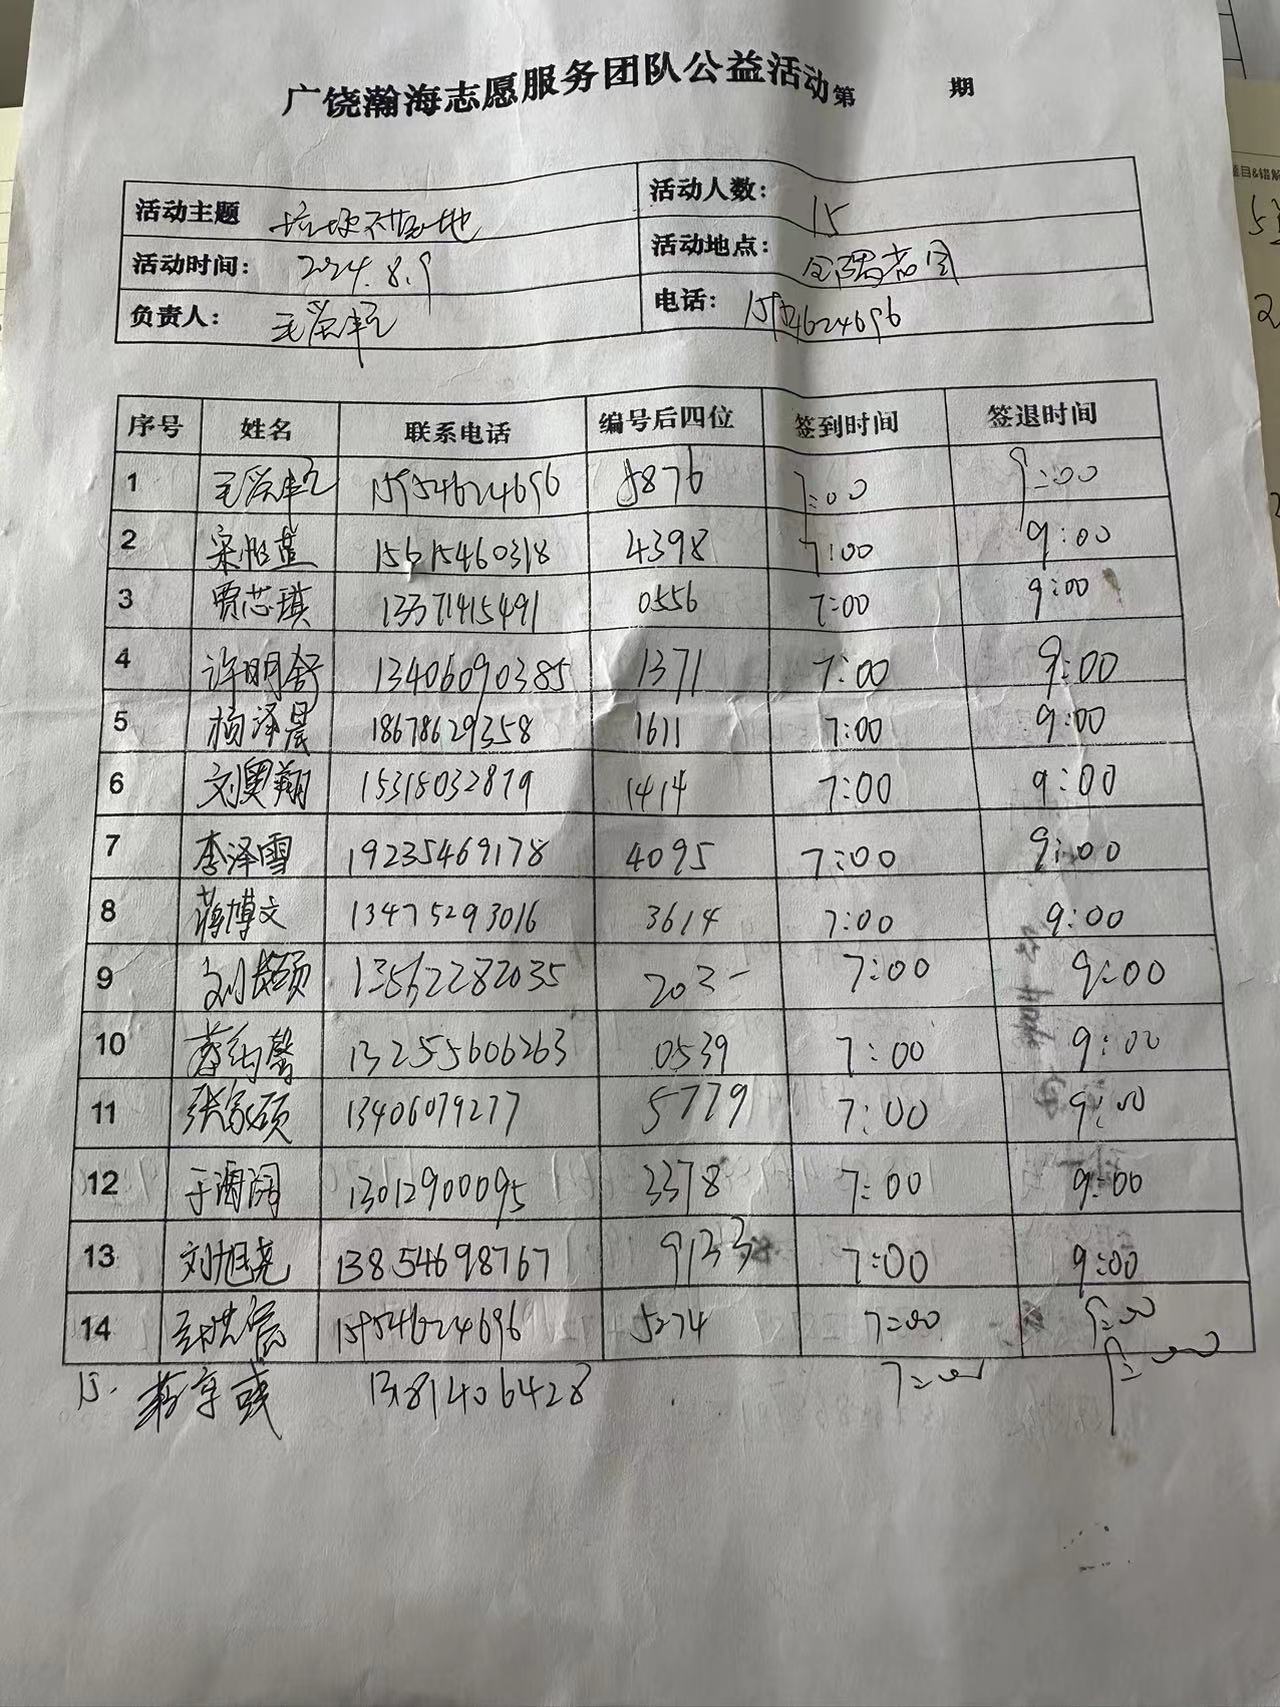 广饶瀚海志愿服务团队公益活动第 期
活动主题 垃圾不落地 活动人数: 15
活动时间: 2024.8.9 活动地点:
负责人: 电话: 15954624696
序号 姓名 联系电话 编号后四位 签到时间 签退时间
1 15954624696 5876 7:00 9:00
2 15615460318 4398 7:00 9:00
3 贾芯琪 13371415491 0556 7:00 9:00
4 许明舒 13406090385 1371 7:00 9:00
5 杨泽晨 18678629358 1611 7:00 9:00
6 刘奥翔 15315032879 1414 7:00 9:00
7 李泽雪 19235469178 4095 7:00 9:00
8 蒋博文 13475293016 3614 7:00 9:00
9 13562282035 203- 7:00 9:00
10 13255606263 0539 7:00 9:00
11 张家硕 13406079277 5779 7:00 9:00
12 13012900095 3378 7:00 9:00
13 刘旭尧 13854698767 9133 7:00 9:00
14 15954624696 5274 7:00 9:00
15. 13181406428 7:00 9:00